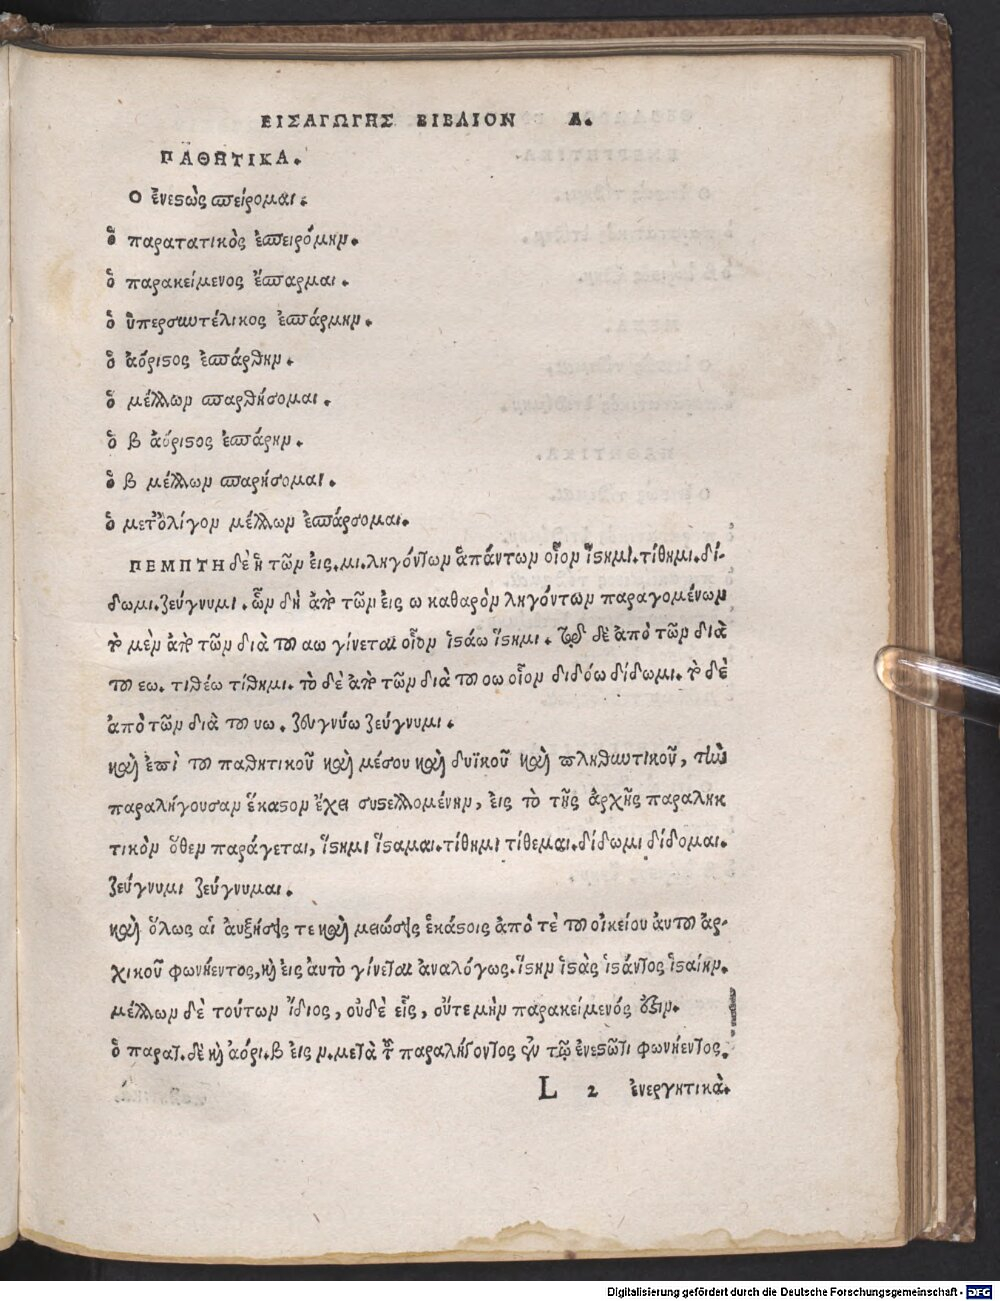 ΕΙΣΑΓΩΓΗΣ ΒΙΒΛΙΟΝ Α.
ΠΑΘΗΤΙΚΑ.
Ο ἐνεϛὼς ϖείρομαι.
ὁ παρατατικὸς ἐϖειρόμην.
ὁ παρακείμενος ἔϖαρμαι.
ὁ ὑπερσυντέλικος ἐϖάρμην.
ὁ ἀόριϛος ἐϖάρθην.
ὁ μέλλων ϖαρθήσομαι.
ὁ β ἀόριϛος ἐϖάρην.
ὁ β μέλλων ϖαρήσομαι.
ὁ μετ᾽ὀλίγον μέλλων ἐϖάρσομαι.
ΠΕΜΠΤΗ δὲ ἡ τῶν εἰς.μι.ληγόντων ἁπάντων οἷον ἵϛημι.τίθημι.δί-
δωμι.ζεύγνυμι. ὧν δὴ ἀπὸ τῶν εἰς ω καθαρὸν ληγόντων παραγομένων
τὸ μὲν ἀπὸ τῶν διὰ τοῦ αω γίνεται οἷον ἱϛάω ἵϛημι. τὸ δὲ ἀπὸ τῶν διὰ
τοῦ εω. τιθέω τίθημι. τὸ δὲ ἀπὸ τῶν διὰ τοῦ οω οἷον διδόω δίδωμι. τὸ δὲ
ἀπὸ τῶν διὰ τοῦ υω. ζευγνύω ζεύγνυμι.
καὶ ἐπὶ τοῦ παθητικοῦ καὶ μέσου καὶ δυϊκοῦ καὶ πληθυντικοῦ, τὴν
παραλήγουσαν ἕκαϛον ἔχει συϛελλομένην, εἰς τὸ τῆς ἀρχῆς παραληκ
τικὸν ὅθεν παράγεται, ἵϛημι ἵϛαμαι.τίθημι τίθεμαι.δίδωμι δίδομαι.
ζεύγνυμι ζεύγνυμαι.
καὶ ὅλως αἱ ἀυξήσεις τε καὶ μειώσεις ἑκάϛοις ἀπό τε τοῦ οἰκείου ἀυτοῦ ἀρ-
χικοῦ φωνήεντος, καὶ εἰς ἀυτὸ γίνεται ἀναλόγως.ἵϛην ἱϛὰς ἱϛάντος ἱϛαίην.
μέλλων δὲ τούτων ἴδιος, οὐδὲ εἷς, οὔτε μὴν παρακείμενός ἐϛιν.
ὁ παρατ. δὲ καὶ ἀόρι.β εἰς ν.μετὰ τοῦ παραλήγοντος ἐν τῷ ἐνεϛῶτι φωνήεντος.
L 2 ἐνεργητικὰ.
Digitalisierung gefördert durch die Deutsche Forschungsgemeinschaft - DFG